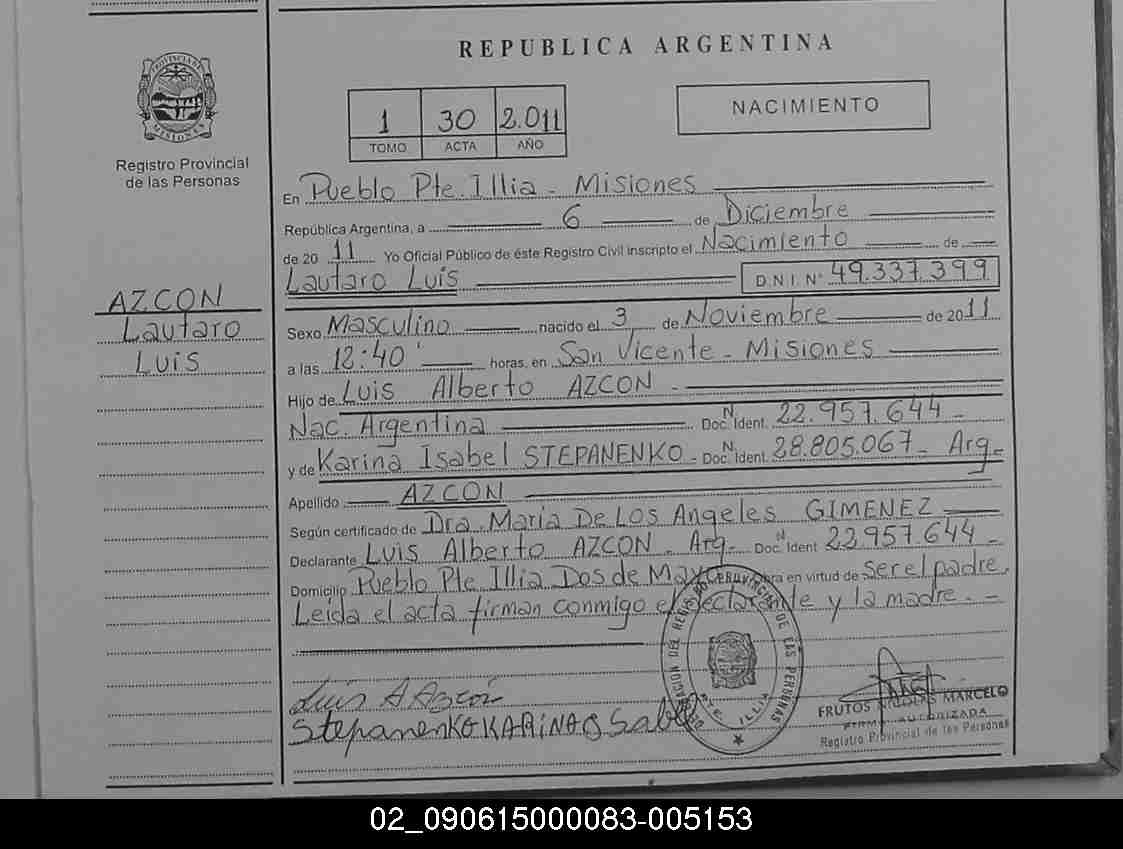 REPUBLICA ARGENTINA
PROVINCIA DE MISIONES
Registro Provincial
de las Personas
1 30 2.011
TOMO ACTA AÑO
NACIMIENTO
En Pueblo Pte. Illia - Misiones
República Argentina, a 6 de Diciembre
de 20 11 Yo Oficial Público de éste Registro Civil inscripto el Nacimiento de
Lautaro Luis D.N.I. N° 49.337.399
AZCON
Lautaro
Luis
Sexo Masculino nacido el 3 de Noviembre de 2011
a las 12:40' horas, en San Vicente - Misiones
Hijo de Luis Alberto AZCON -
Nac. Argentina Doc. N Ident. 22.957.644 -
y de Karina Isabel STEPANENKO - Doc. N Ident. 28.805.067 - Arg -
Apellido AZCON
Según certificado de Dra. Maria De Los Angeles GIMENEZ
Declarante Luis Alberto AZCON - Arg - Doc. N Ident 22.957.644 -
Domicilio Pueblo Pte. Illia Dos de Mayo obra en virtud de ser el padre.
Leida el acta firman conmigo el declarante y la madre. -
Luis A Azcon
Stepanenko KARINA ISabel
DELEGACION DEL REGISTRO PROVINCIAL DE LAS PERSONAS
PTE. ILLIA
FRUTOS NICOLAS MARCELO
FIRMA AUTORIZADA
Registro Provincial de las Personas
02_090615000083-005153